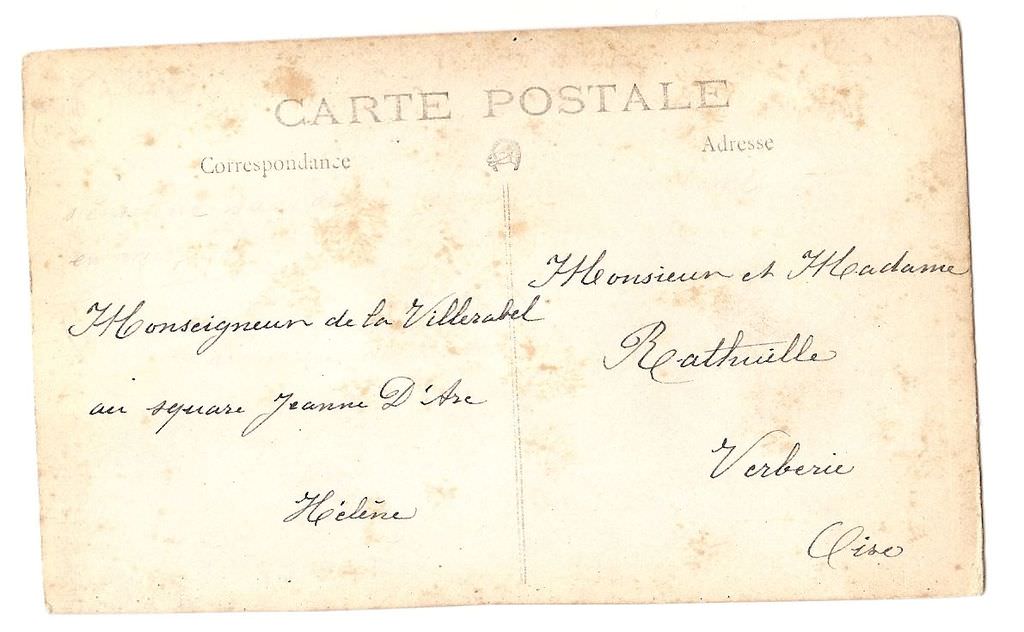 CARTE POSTALE
Correspondance
Adresse
Monseigneur de la Villerabel
au square Jeanne D'Arc
Hélène
Monsieur et Madame
Rathuille
Verberie
Oise